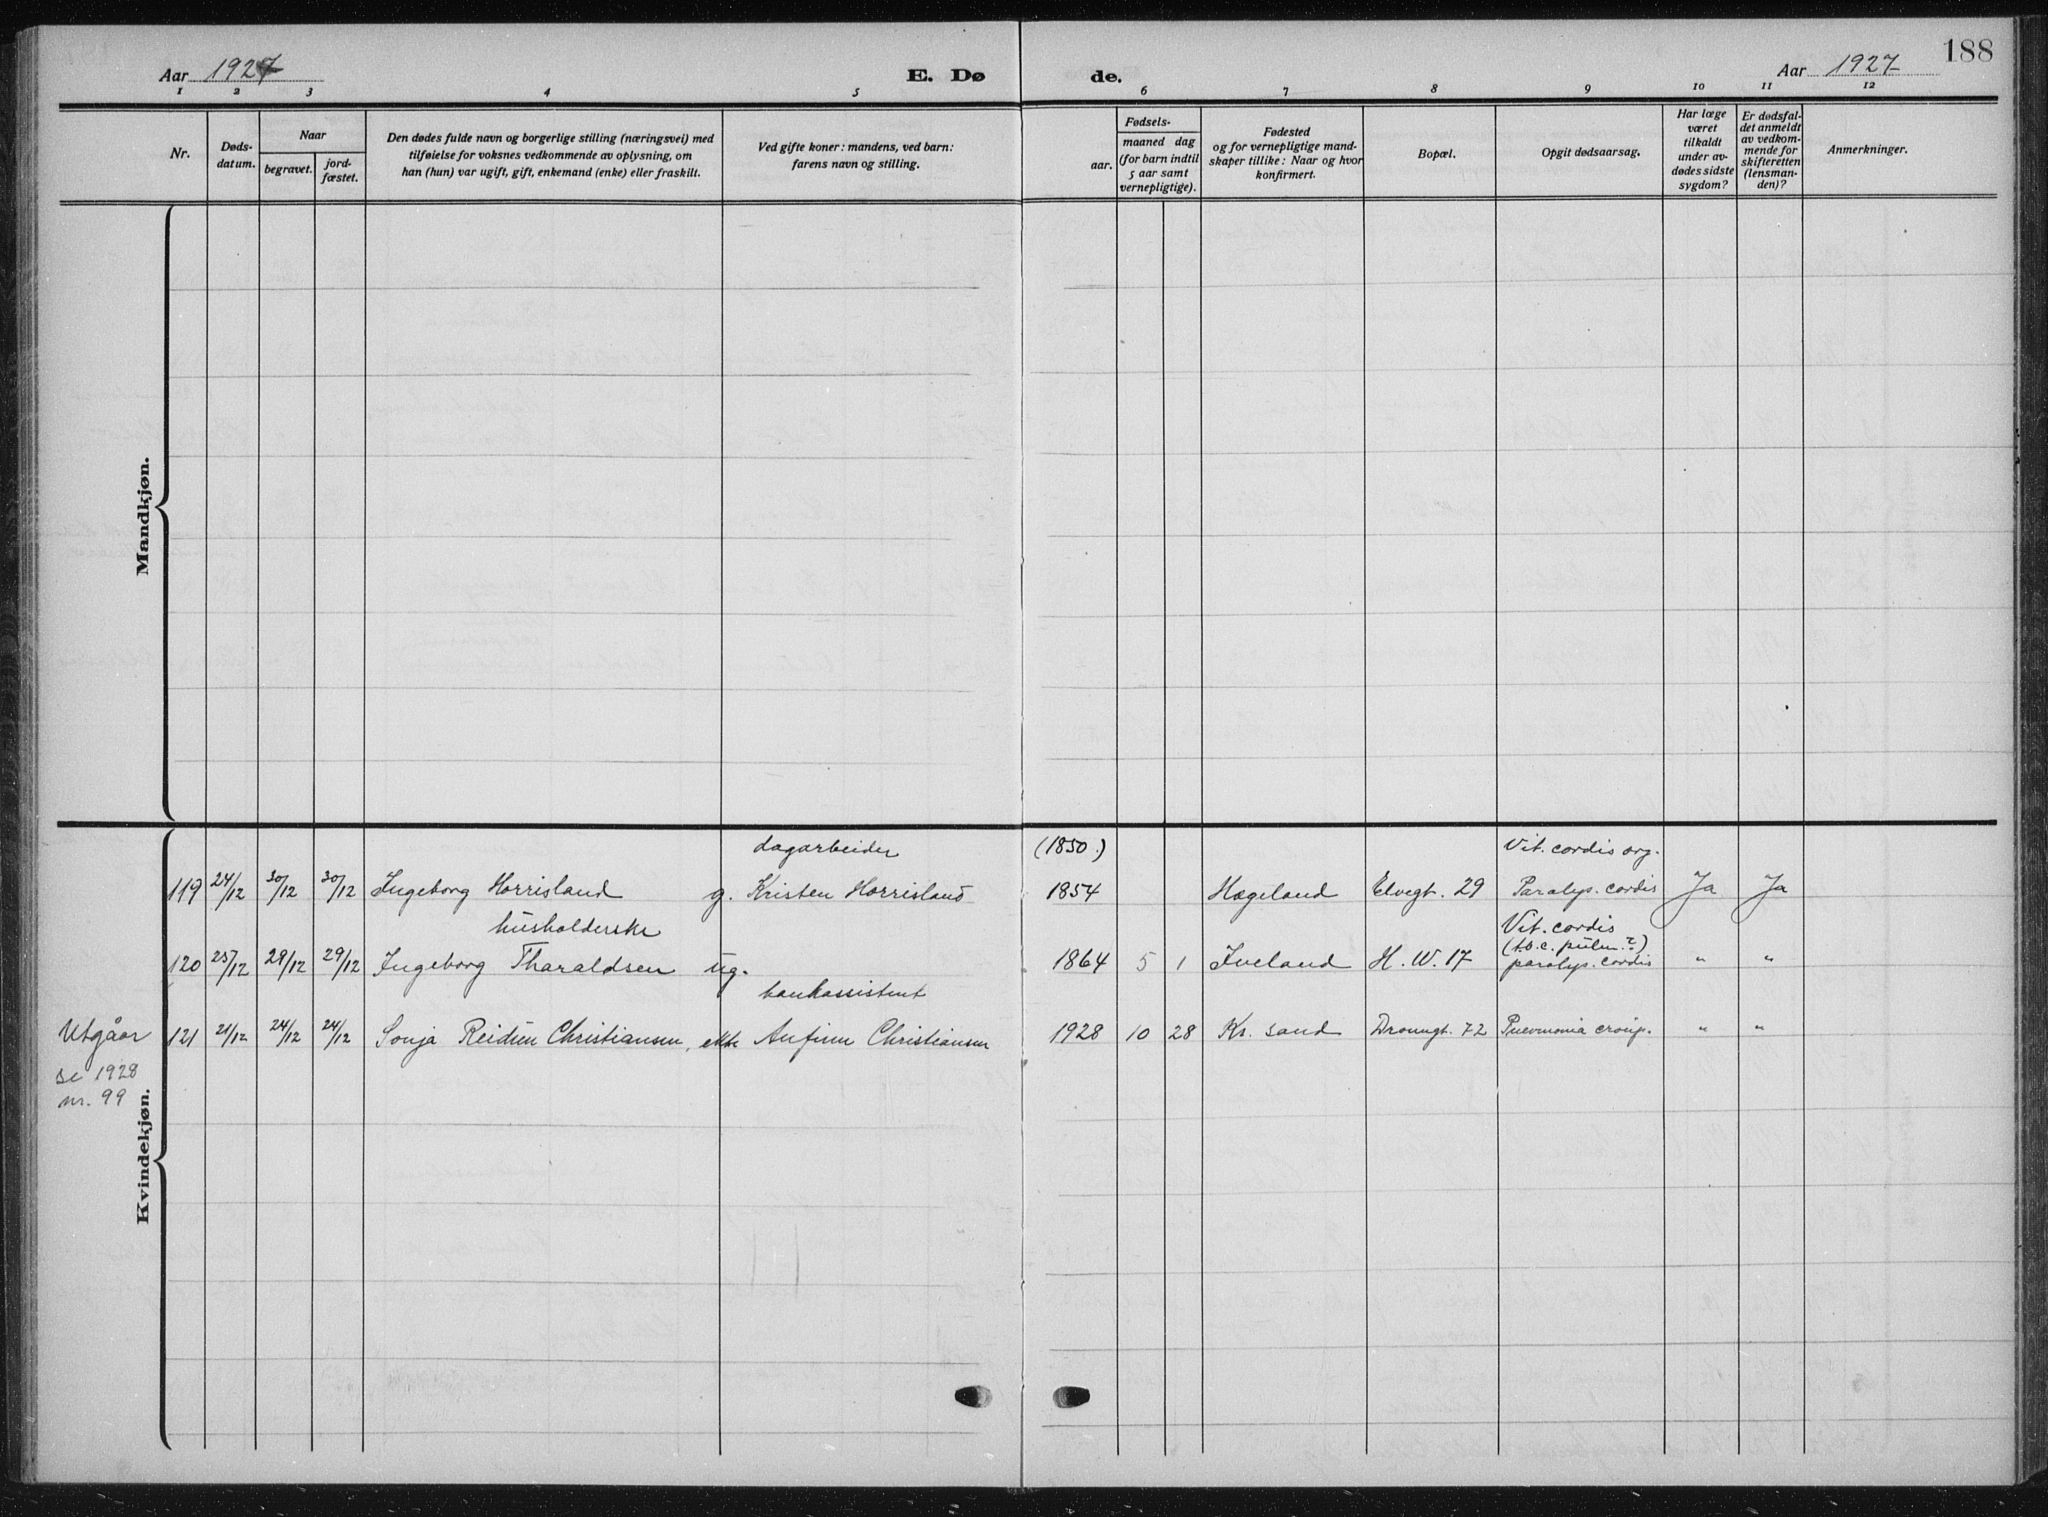 Aar 1927
E. Dø
de.
Aar 1927
188
1 2 3 4 5 6 7 8 9 10 11 12
Nr.
Døds-
datum.
Naar
begravet.
jord-
fæstet.
Den dødes fulde navn og borgerlige stilling (næringsvei) med
tilføielse for voksnes vedkommende av oplysning, om
han (hun) var ugift, gift, enkemand (enke) eller fraskilt.
Ved gifte koner: mandens, ved barn:
farens navn og stilling.
Fødsels-
aar.
maaned dag
(for barn indtil
5 aar samt
vernepligtige).
Fødested
og for vernepligtige mand-
skaper tillike: Naar og hvor
konfirmert.
Bopæl.
Opgit dødsaarsag.
Har læge
været
tilkaldt
under av-
dødes sidste
sygdom?
Er dødsfal-
det anmeldt
av vedkom-
mende for
skifteretten
(lensman-
den)?
Anmerkninger.
Mandkjøn.
dagarbeider (1850.) Vit. cordis org.
119 24/12 30/12 30/12 Ingeborg Horrisland g. Kristen Horrisland 1854 Hægeland Elvegt. 29 Paralys. cordis Ja Ja
husholderske Vit. cordis
(t.b.c. pulm.?)
120 25/12 28/12 29/12 Ingeborg Tharaldsen ug. 1864 5 1 Iveland H. W. 17 paralys. cordis " "
bankassistent
121 21/12 24/12 24/12 Sonja Reidun Christiansen, ekte Anfinn Christiansen 1928 10 28 Kr. sand Dronngt. 72 Pneumonia croup. " "
Utgåar
se 1928
nr. 99
Kvindekjøn.